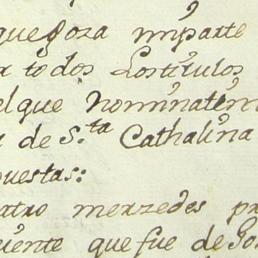 que goza mi parte
todos Los titulos
el que Nominaten
de S.ta Cathalina
puestas:
atro merzedes pr
uiente que fue de Jo